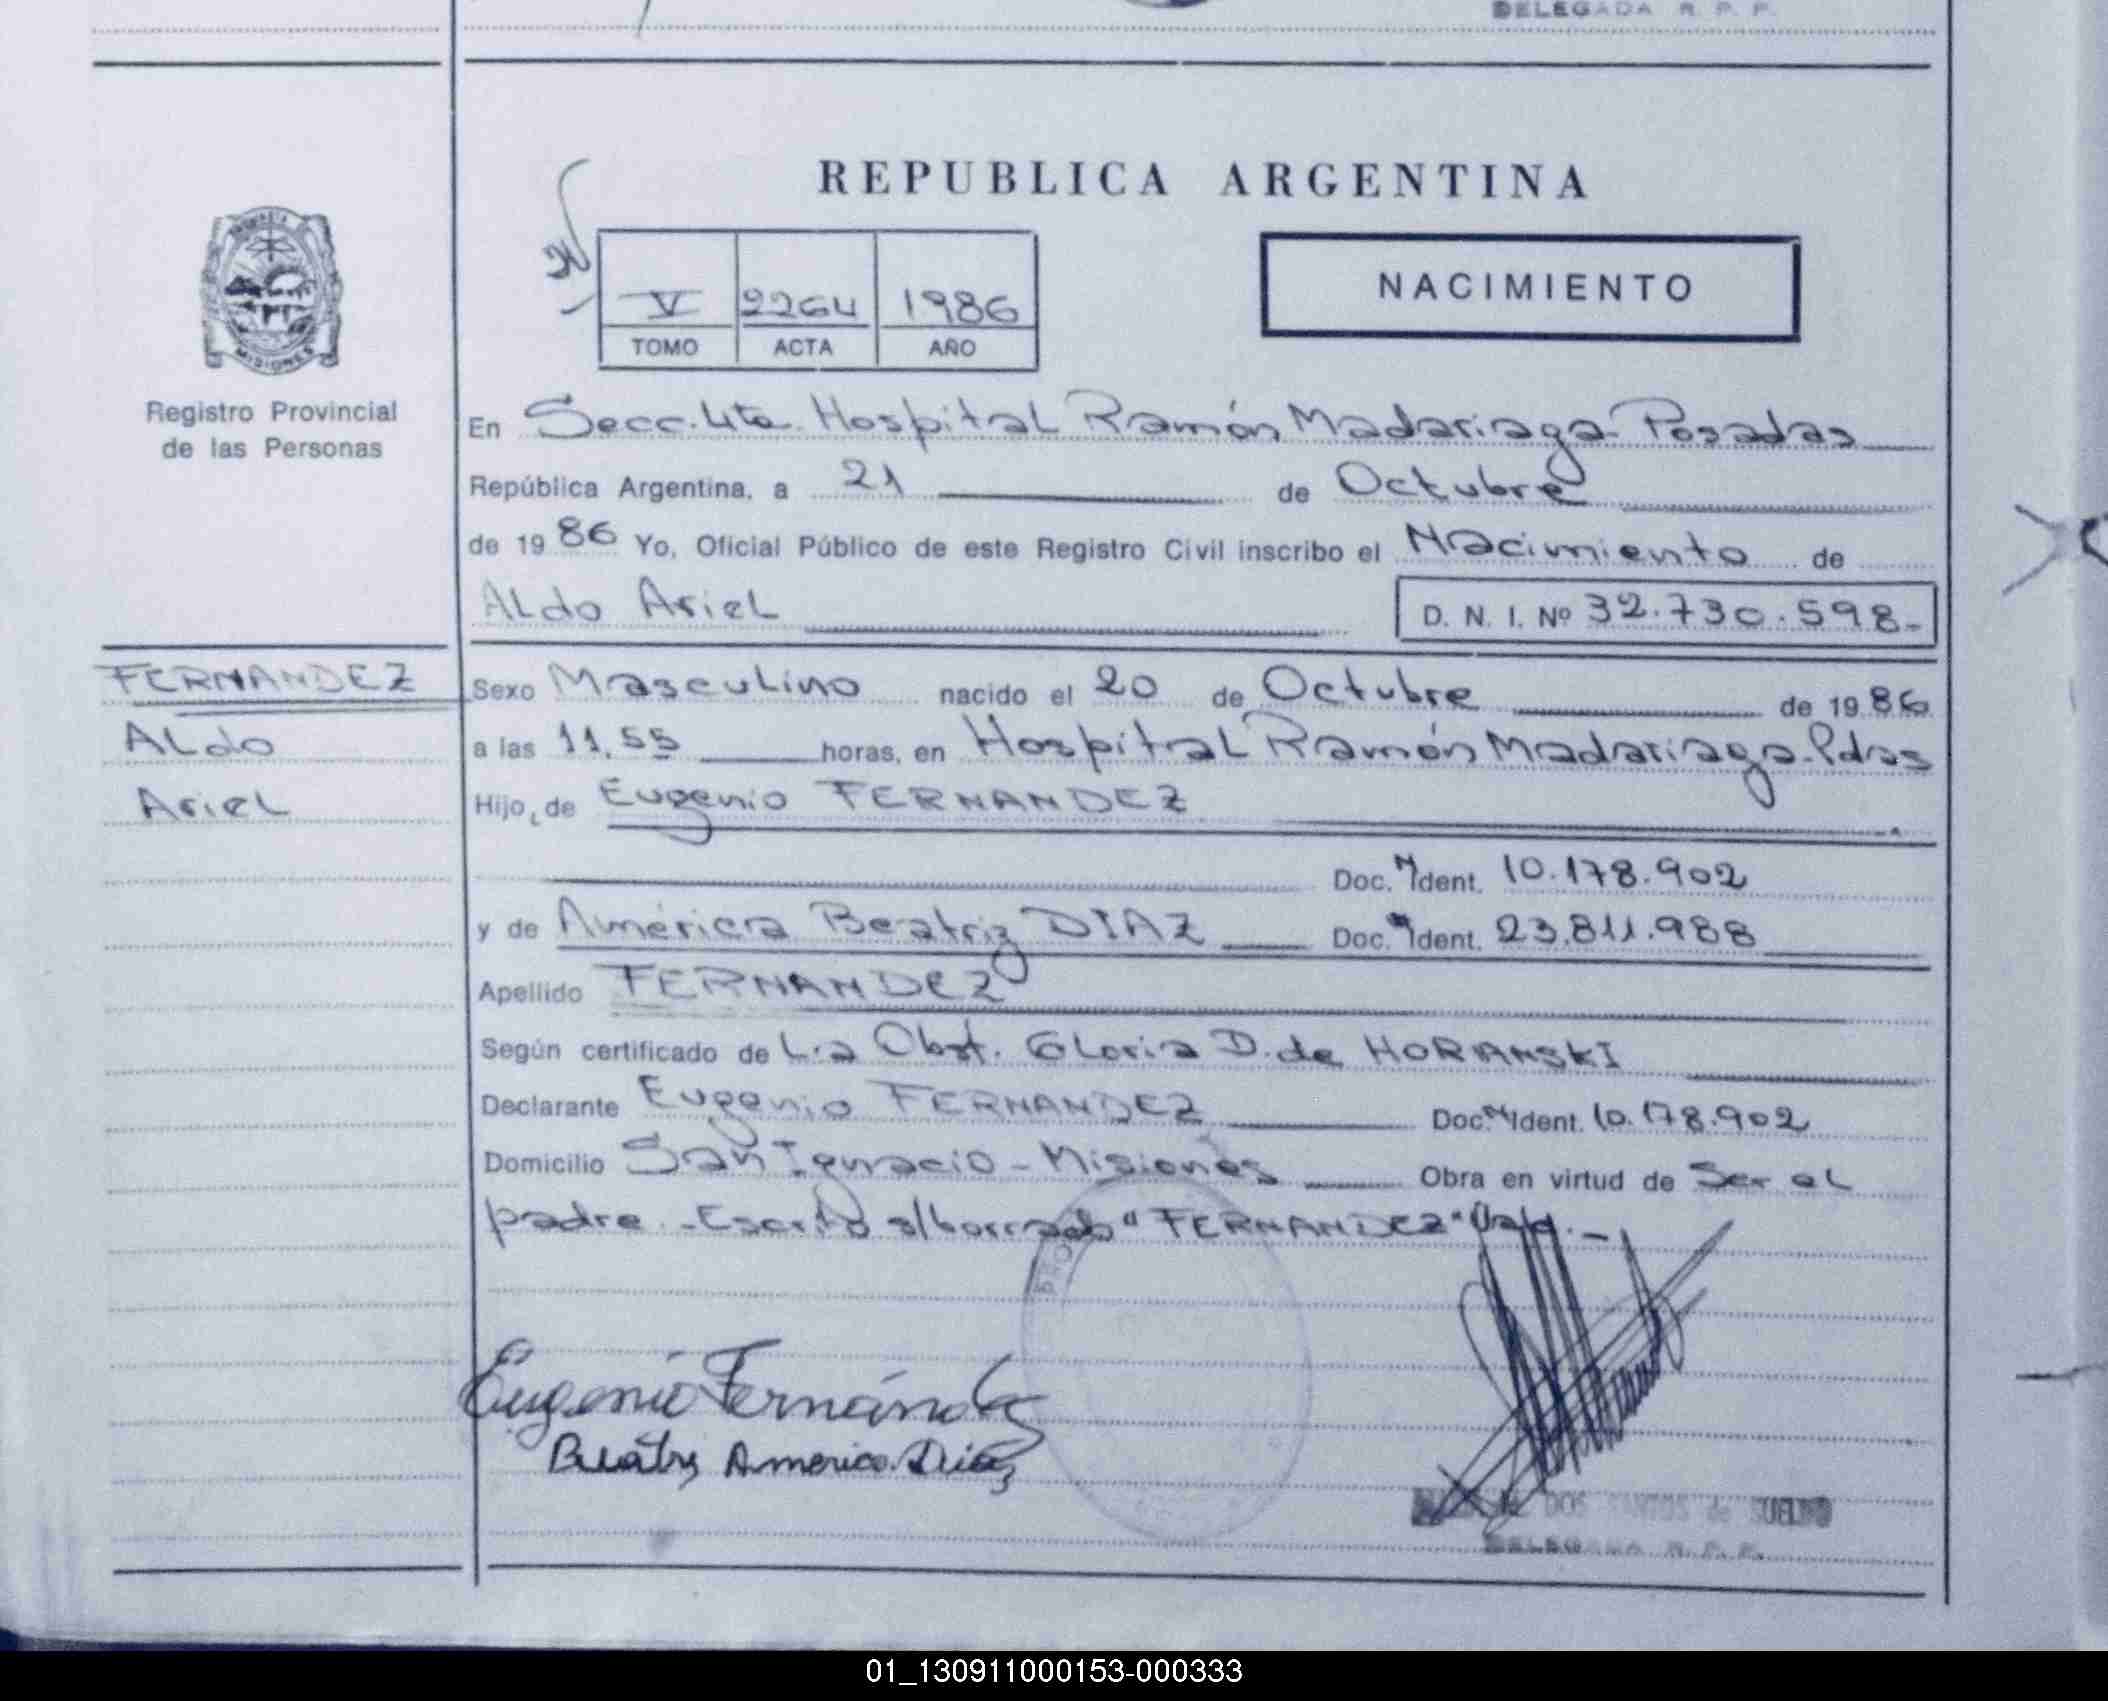 DELEGADA R. P. P.
REPUBLICA ARGENTINA
NACIMIENTO
V 2264 1986
TOMO ACTA AÑO
MISIONES
Registro Provincial
de las Personas
En Secc. 4ta. Hospital Ramón Madariaga - Posadas
República Argentina, a 21 de Octubre
de 1986 Yo, Oficial Público de este Registro Civil inscribo el Nacimiento de
Aldo Ariel D. N. I. Nº 32.730.598-
FERNANDEZ
Aldo
Ariel
Sexo Masculino nacido el 20 de Octubre de 1986
a las 11,55 horas, en Hospital Ramón Madariaga - Pdas
Hijo, de Eugenio FERNANDEZ
Doc. N Ident. 10.178.902
y de América Beatriz DIAZ Doc. N Ident. 23.811.988
Apellido FERNANDEZ
Según certificado de La Obst. Gloria D. de HORANSKI
Declarante Eugenio FERNANDEZ Doc. N Ident. 10.178.902
Domicilio San Ignacio - Misiones Obra en virtud de Ser el
padre. - Escrito s/borrado "FERNANDEZ" Vale. -
Eugenio Fernández
Beatriz America Diaz
DOS SANTOS de
DELEGADA R. P. P.
01_130911000153-000333